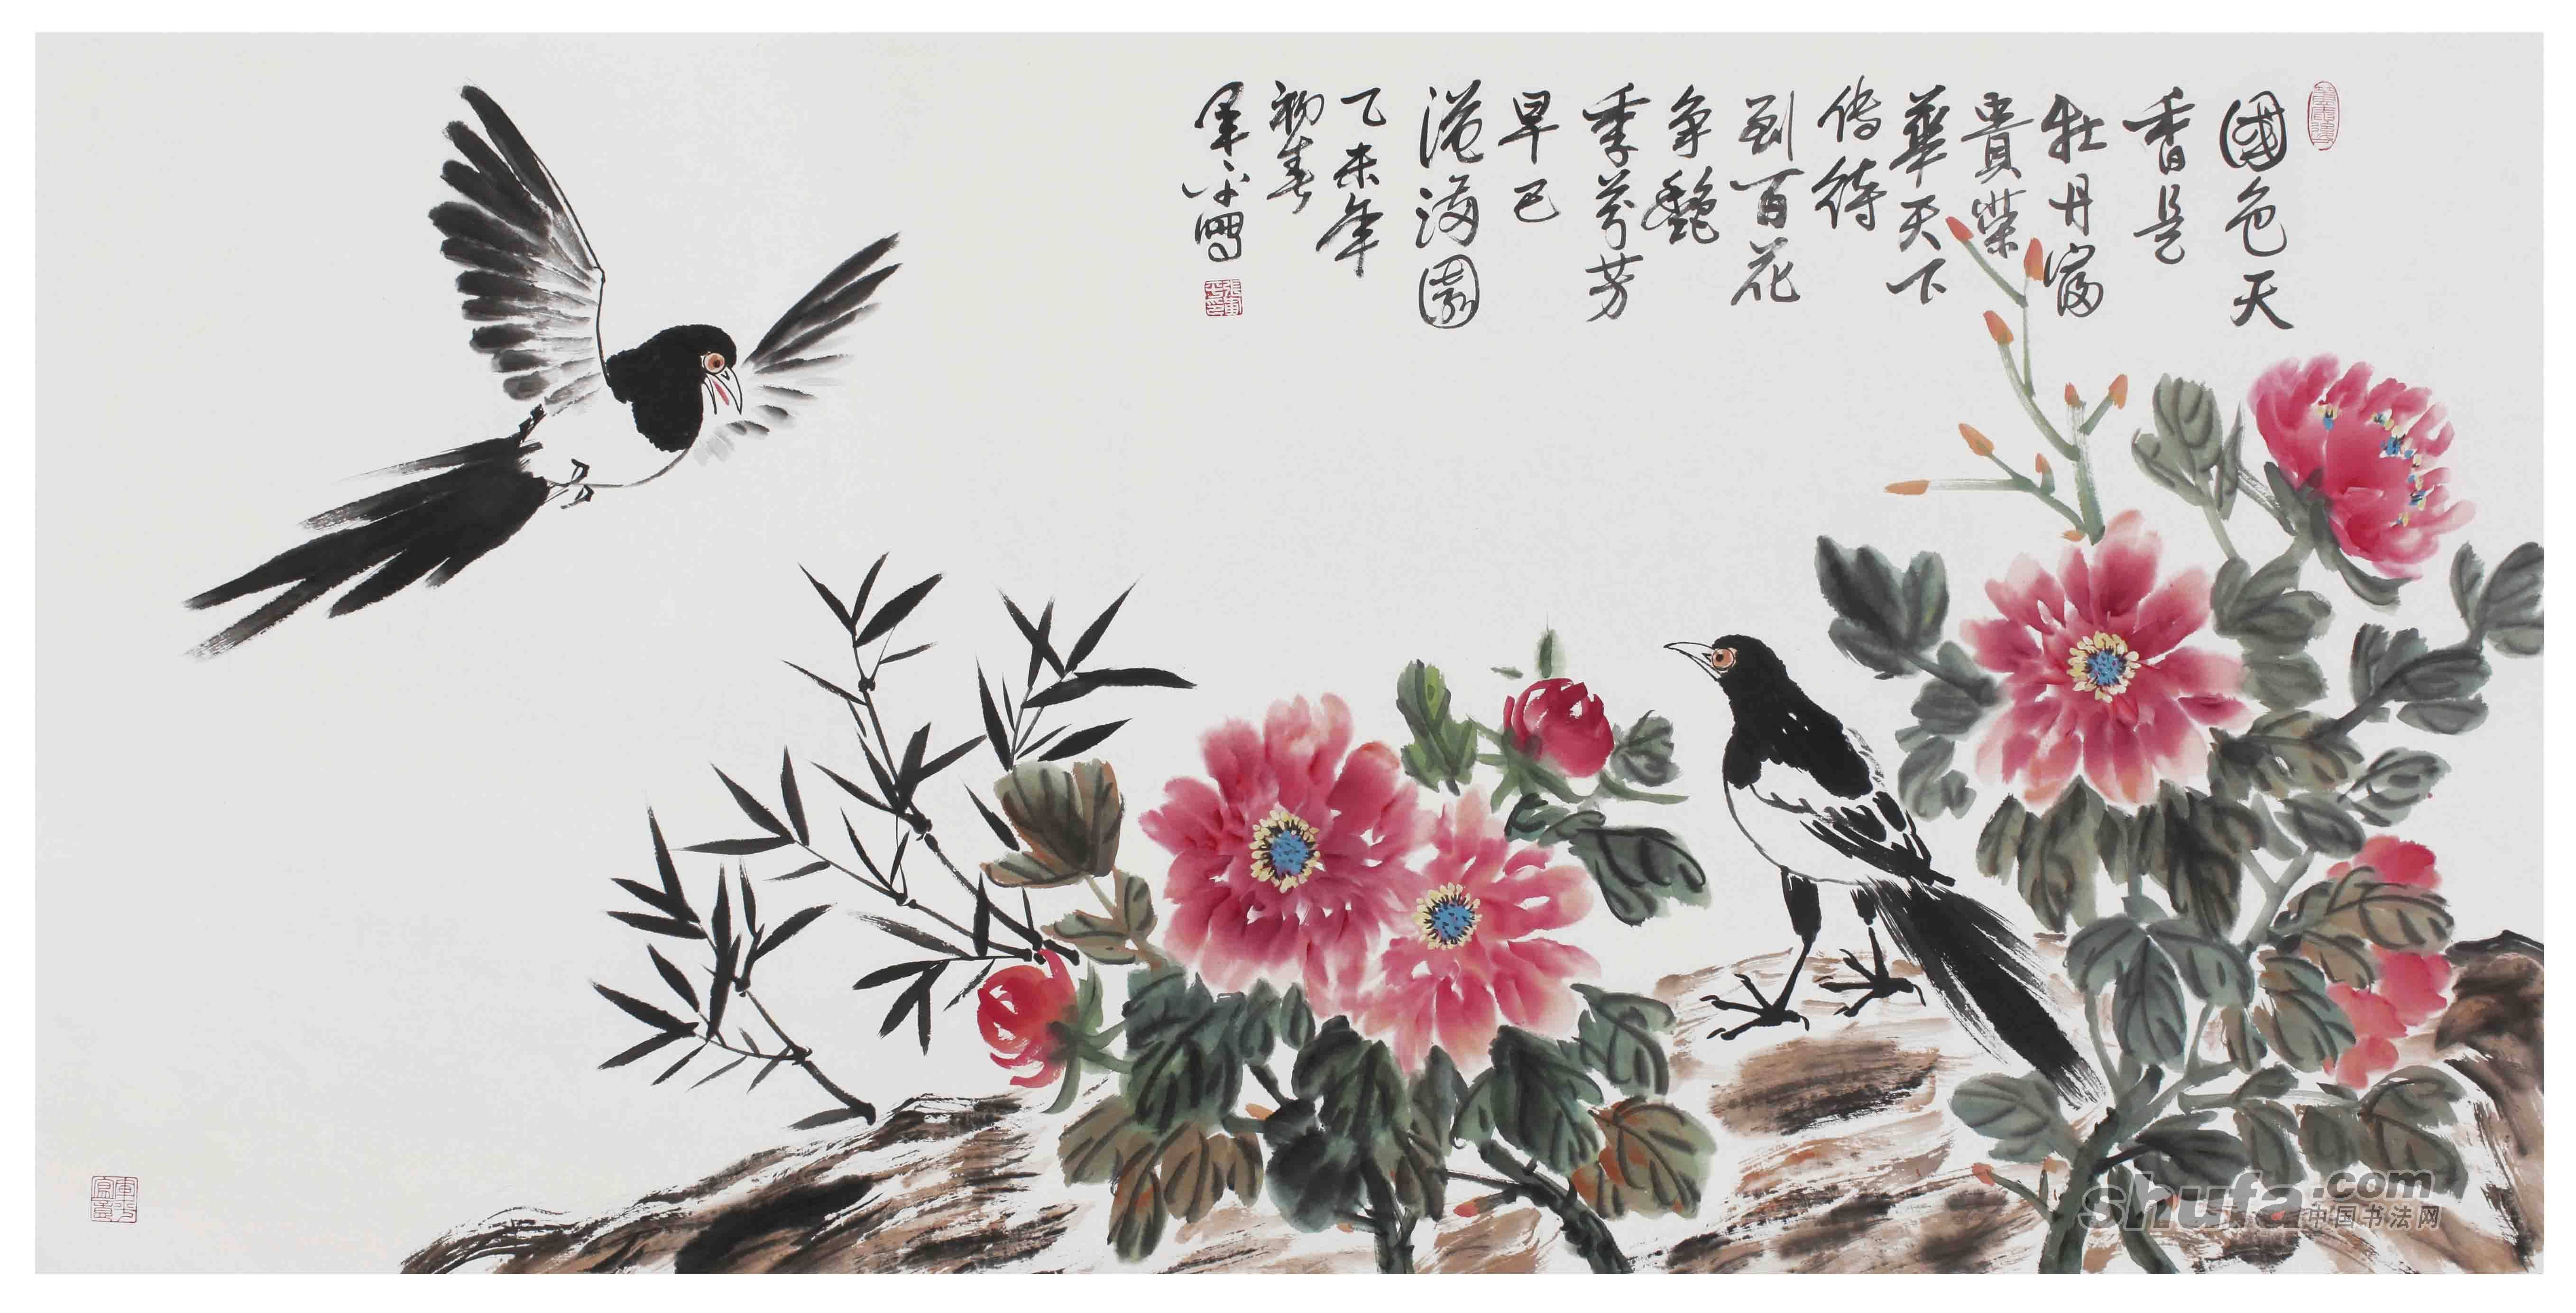 國色天
香是
牡丹富
貴榮
華天下
传待
到百花
争艷
季芬芳
早已
溢满園
乙未年
初春
軍平寫
張軍
平印
shufa.com
中国书法网